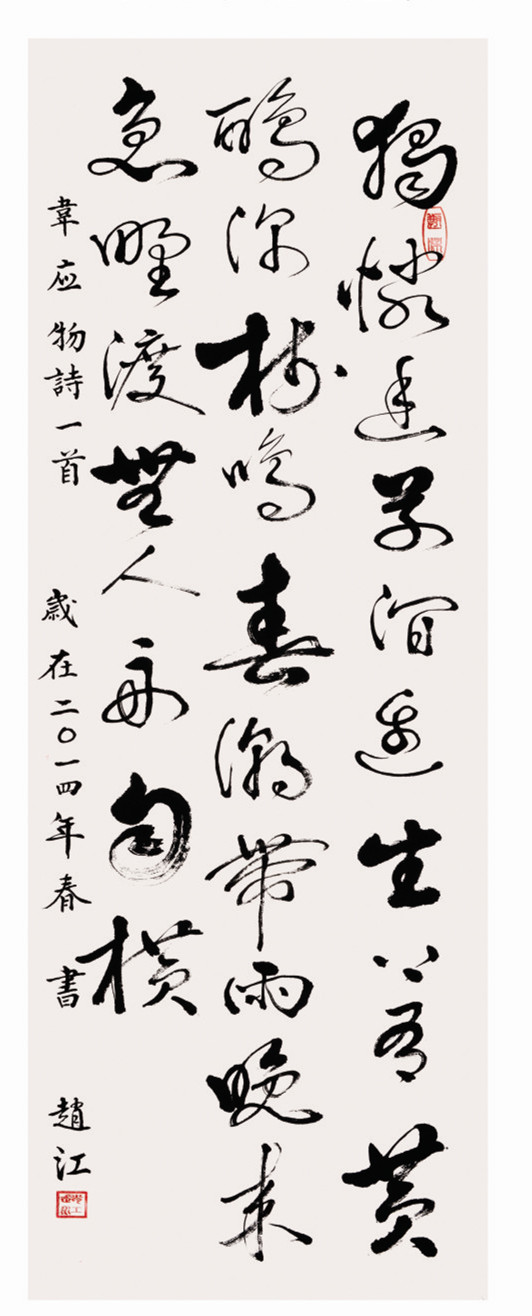 獨憐幽草澗邊生上有黃
鸝深樹鳴春潮帶雨晚來
急野渡無人舟自橫
韋应物詩一首 歲在二〇一四年春 書 趙江